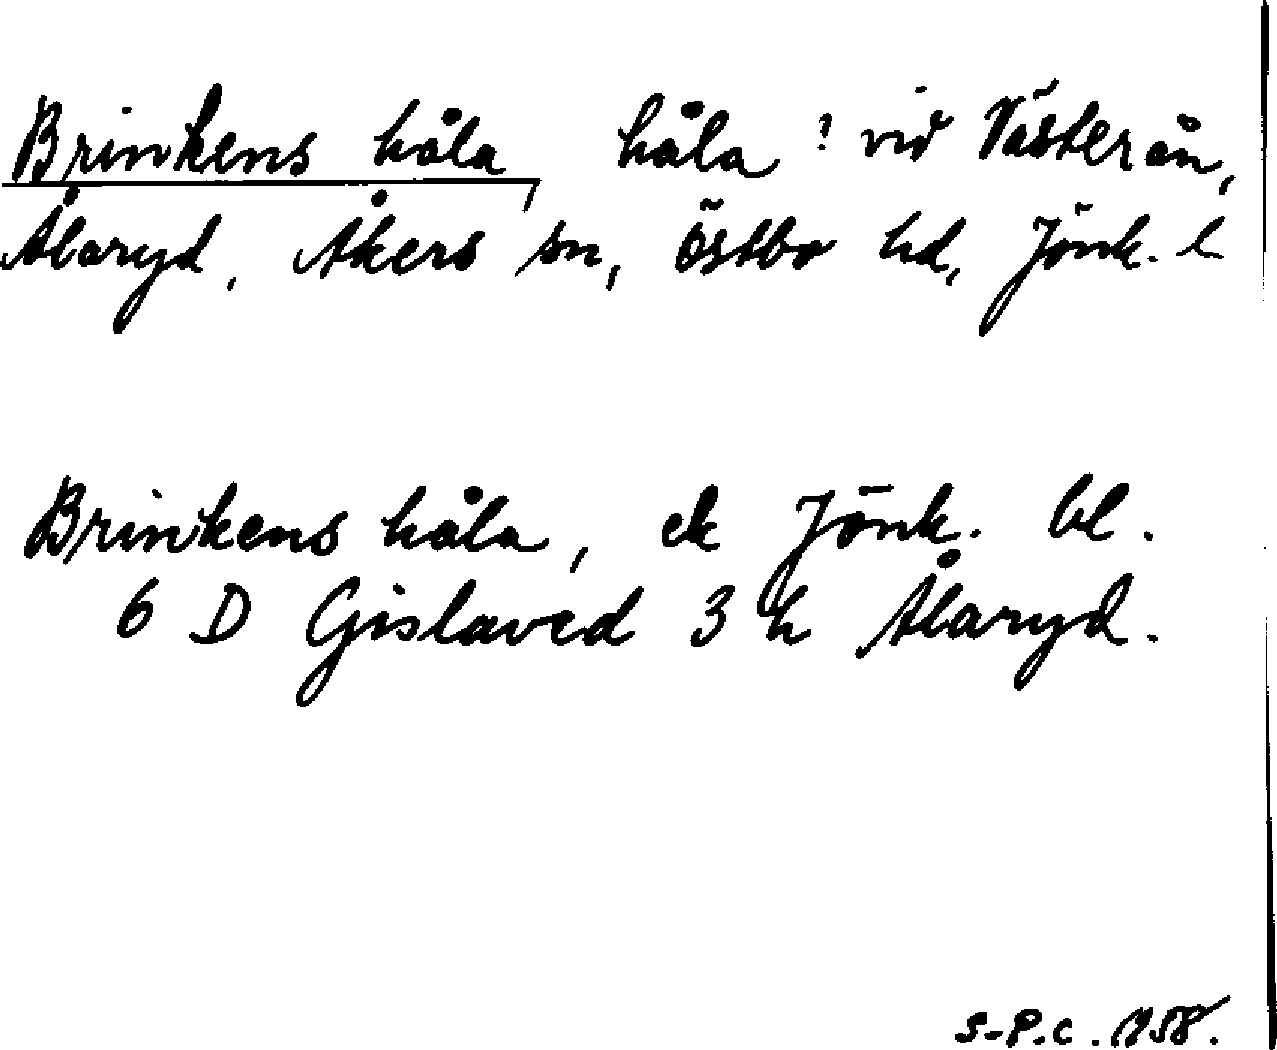 Brinkens håla, håla? vid Västerån,
Åbaryd, Åkers sn, Östbo hd, Jönk. l
Brinkens håla, ek Jönk. bl.
6 D Gislaved 3 h Åbaryd.
S-P.C. 1958.